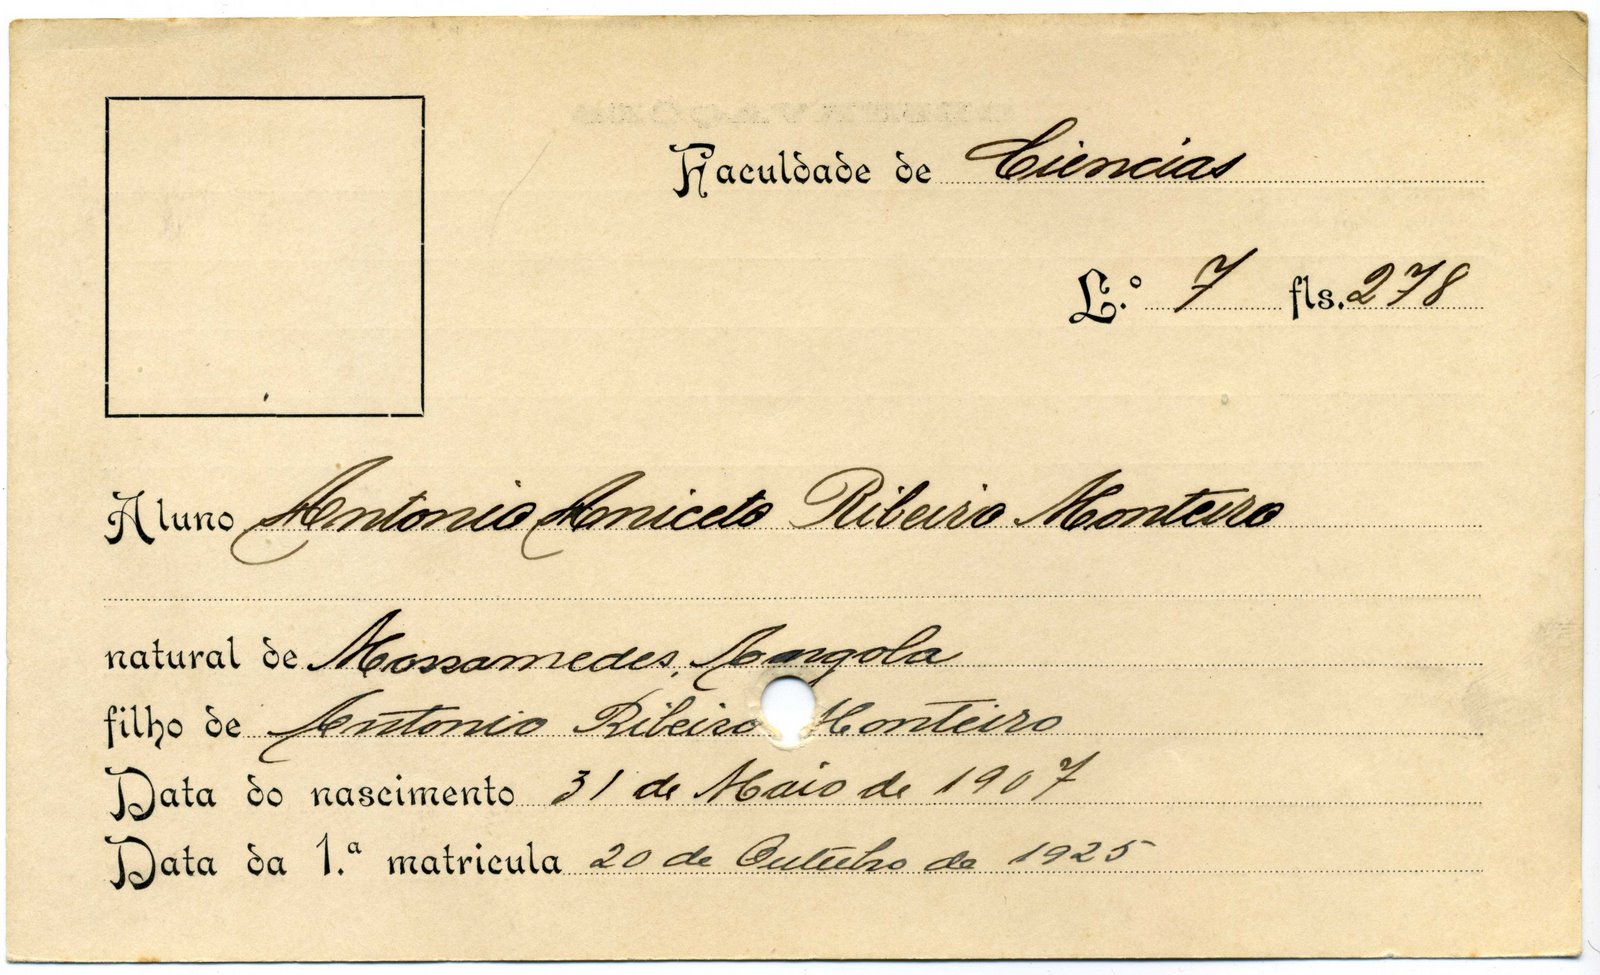 Faculdade de Ciencias
L.º 7 fls. 278
Aluno Antonio Aniceto Ribeiro Monteiro
natural de Mossamedes, Angola
filho de Antonio Ribeiro Monteiro
Data do nascimento 31 de Maio de 1907
Data da 1.ª matricula 20 de Outubro de 1925